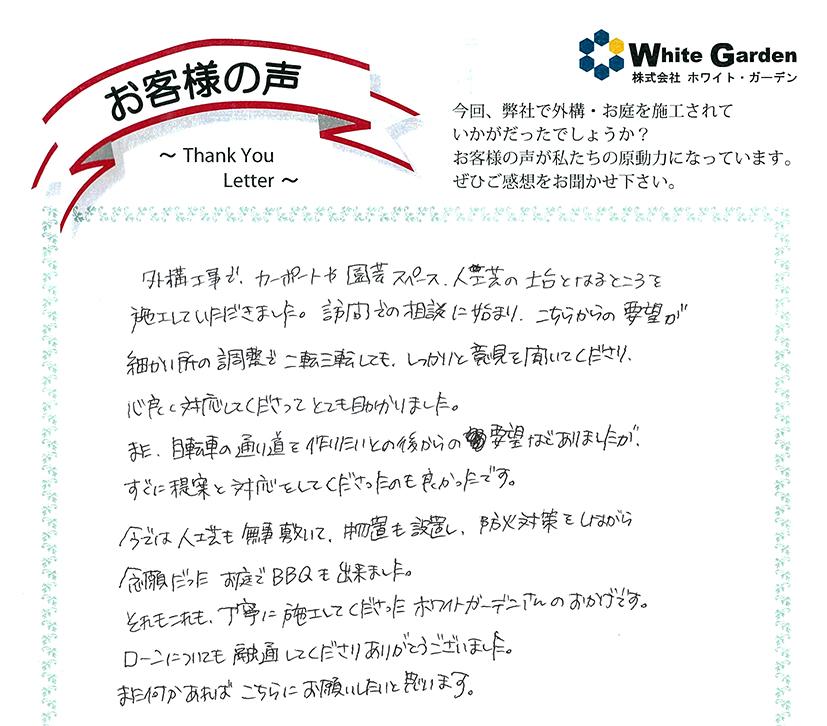 お客様の声
～ Thank You
Letter ～
White Garden
株式会社 ホワイト・ガーデン
今回、弊社で外構・お庭を施工されて
いかがだったでしょうか？
お客様の声が私たちの原動力になっています。
ぜひご感想をお聞かせ下さい。
外構工事で、カーポートや園芸スペース、人工芝の土台となるところを
施工していただきました。訪問での相談に始まり、こちらからの要望が
細かい所の調整で二転三転しても、しっかりと意見を聞いてくださり、
心良く対応してくださってとても助かりました。
また、自転車の通り道を作りたいとの後からの要望などありましたが、
すぐに提案と対応をしてくださったのも良かったです。
今では人工芝も無事敷いて、物置も設置し、防火対策をしながら
念願だったお庭でBBQも出来ました。
それもこれも、丁寧に施工してくださったホワイトガーデンさんのおかげです。
ローンについても融通してくださりありがとうございました。
また何かあればこちらにお願いしたいと思います。